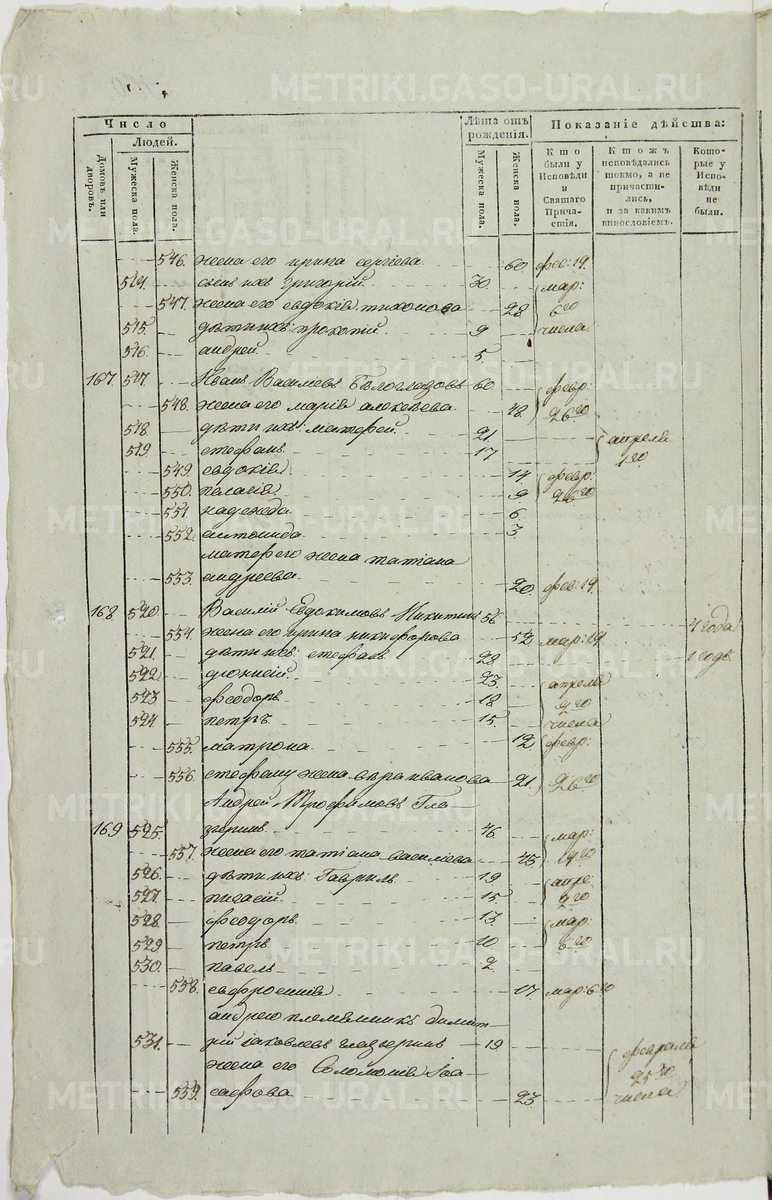 Число
Людей.
Домовъ или дворовъ.
Мужеска пола.
Женска пола.
Лѣта отъ рожденія.
Мужеска пола.
Женска пола.
Показаніе дѣйства:
Кто были у Исповѣди и Святаго Причастія.
Ктожъ исповѣдались токмо, а не причастились, и за какимъ винословіемъ.
Которые у Исповѣди не были.
546. жена его ирина сергѣева 60. фев: 19.
514. сынъ ихъ григорій 30. мар:
547. жена его евдокія тихонова 28 6го
515. дѣти ихъ: прокопій 9 числа
516. андрей 5
167 517. Иванъ Василиевъ Бѣлоглазовъ 60 февр:
548. жена его марія алексѣева 48. 26го
518. дѣти ихъ: матфей 21. апреля
519 стефанъ 17
549. евдокія 14 февр:
550. пелагія 9 26го
551 надежда 6
552. антонида 3.
матфею жена татіана
553. андреева 20. фев: 19.
168 520. Василій Евдокимовъ Никитинъ 56 4 года
554. жена его ирина никифорова 52 мар: 19
521 дѣти ихъ: стефанъ 28 1 годъ
522. діонисій 23. апреля
523 феодоръ 18 2го
524 петръ 15. числа
555. матрона 12 февр:
556. стефану жена вѣра иванова 21. 26го
Андрей Трофимовъ Гла-
169 525. зеринъ 46. мар:
557. жена его татіана василиева 45 19го
526. дѣти ихъ: Гавриилъ 19 апре:
527 15 2го
528. феодоръ 13. мар:
529 петръ 10. 6го
530. павелъ 2
558. евфросинія 17 мар: 6го
андрею племянникъ димит-
531. рій іаковлевъ глазеринъ 19
жена его Соломонія Іоа- февраля
559. сафова 23. 25го
числа
METRIKI.GASO-URAL.RU